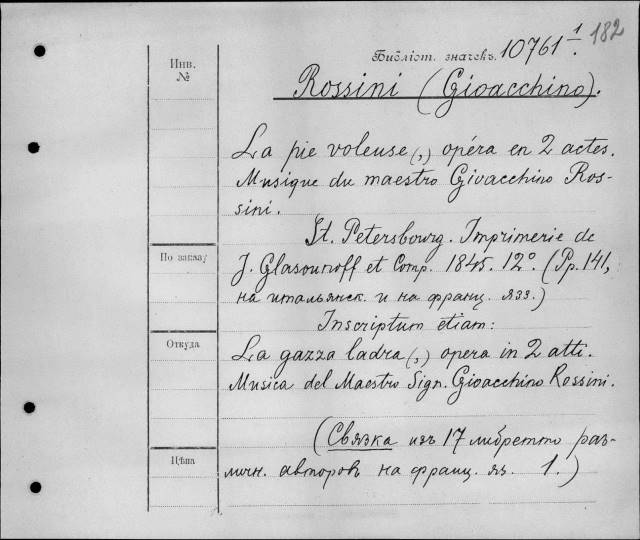 182
Библіот. значекъ. 10761 1/.
Инв.
№
Rossini (Gioacchino).
La pie voleuse(,) opéra en 2 actes.
Musique du maestro Gioacchino Ros-
sini.
St. Petersbourg. Imprimerie de
По заказу
J. Glasounoff et Comp. 1845. 12°. (Pp. 141,
на итальянск. и на франц. язз.)
Inscriptum etiam:
Откуда
La gazza ladra(,) opera in 2 atti.
Musica del Maestro Sign. Gioacchino Rossini.
(Связка изъ 17 либретто раз-
Цѣна
личн. авторовъ на франц. яз. 1.)